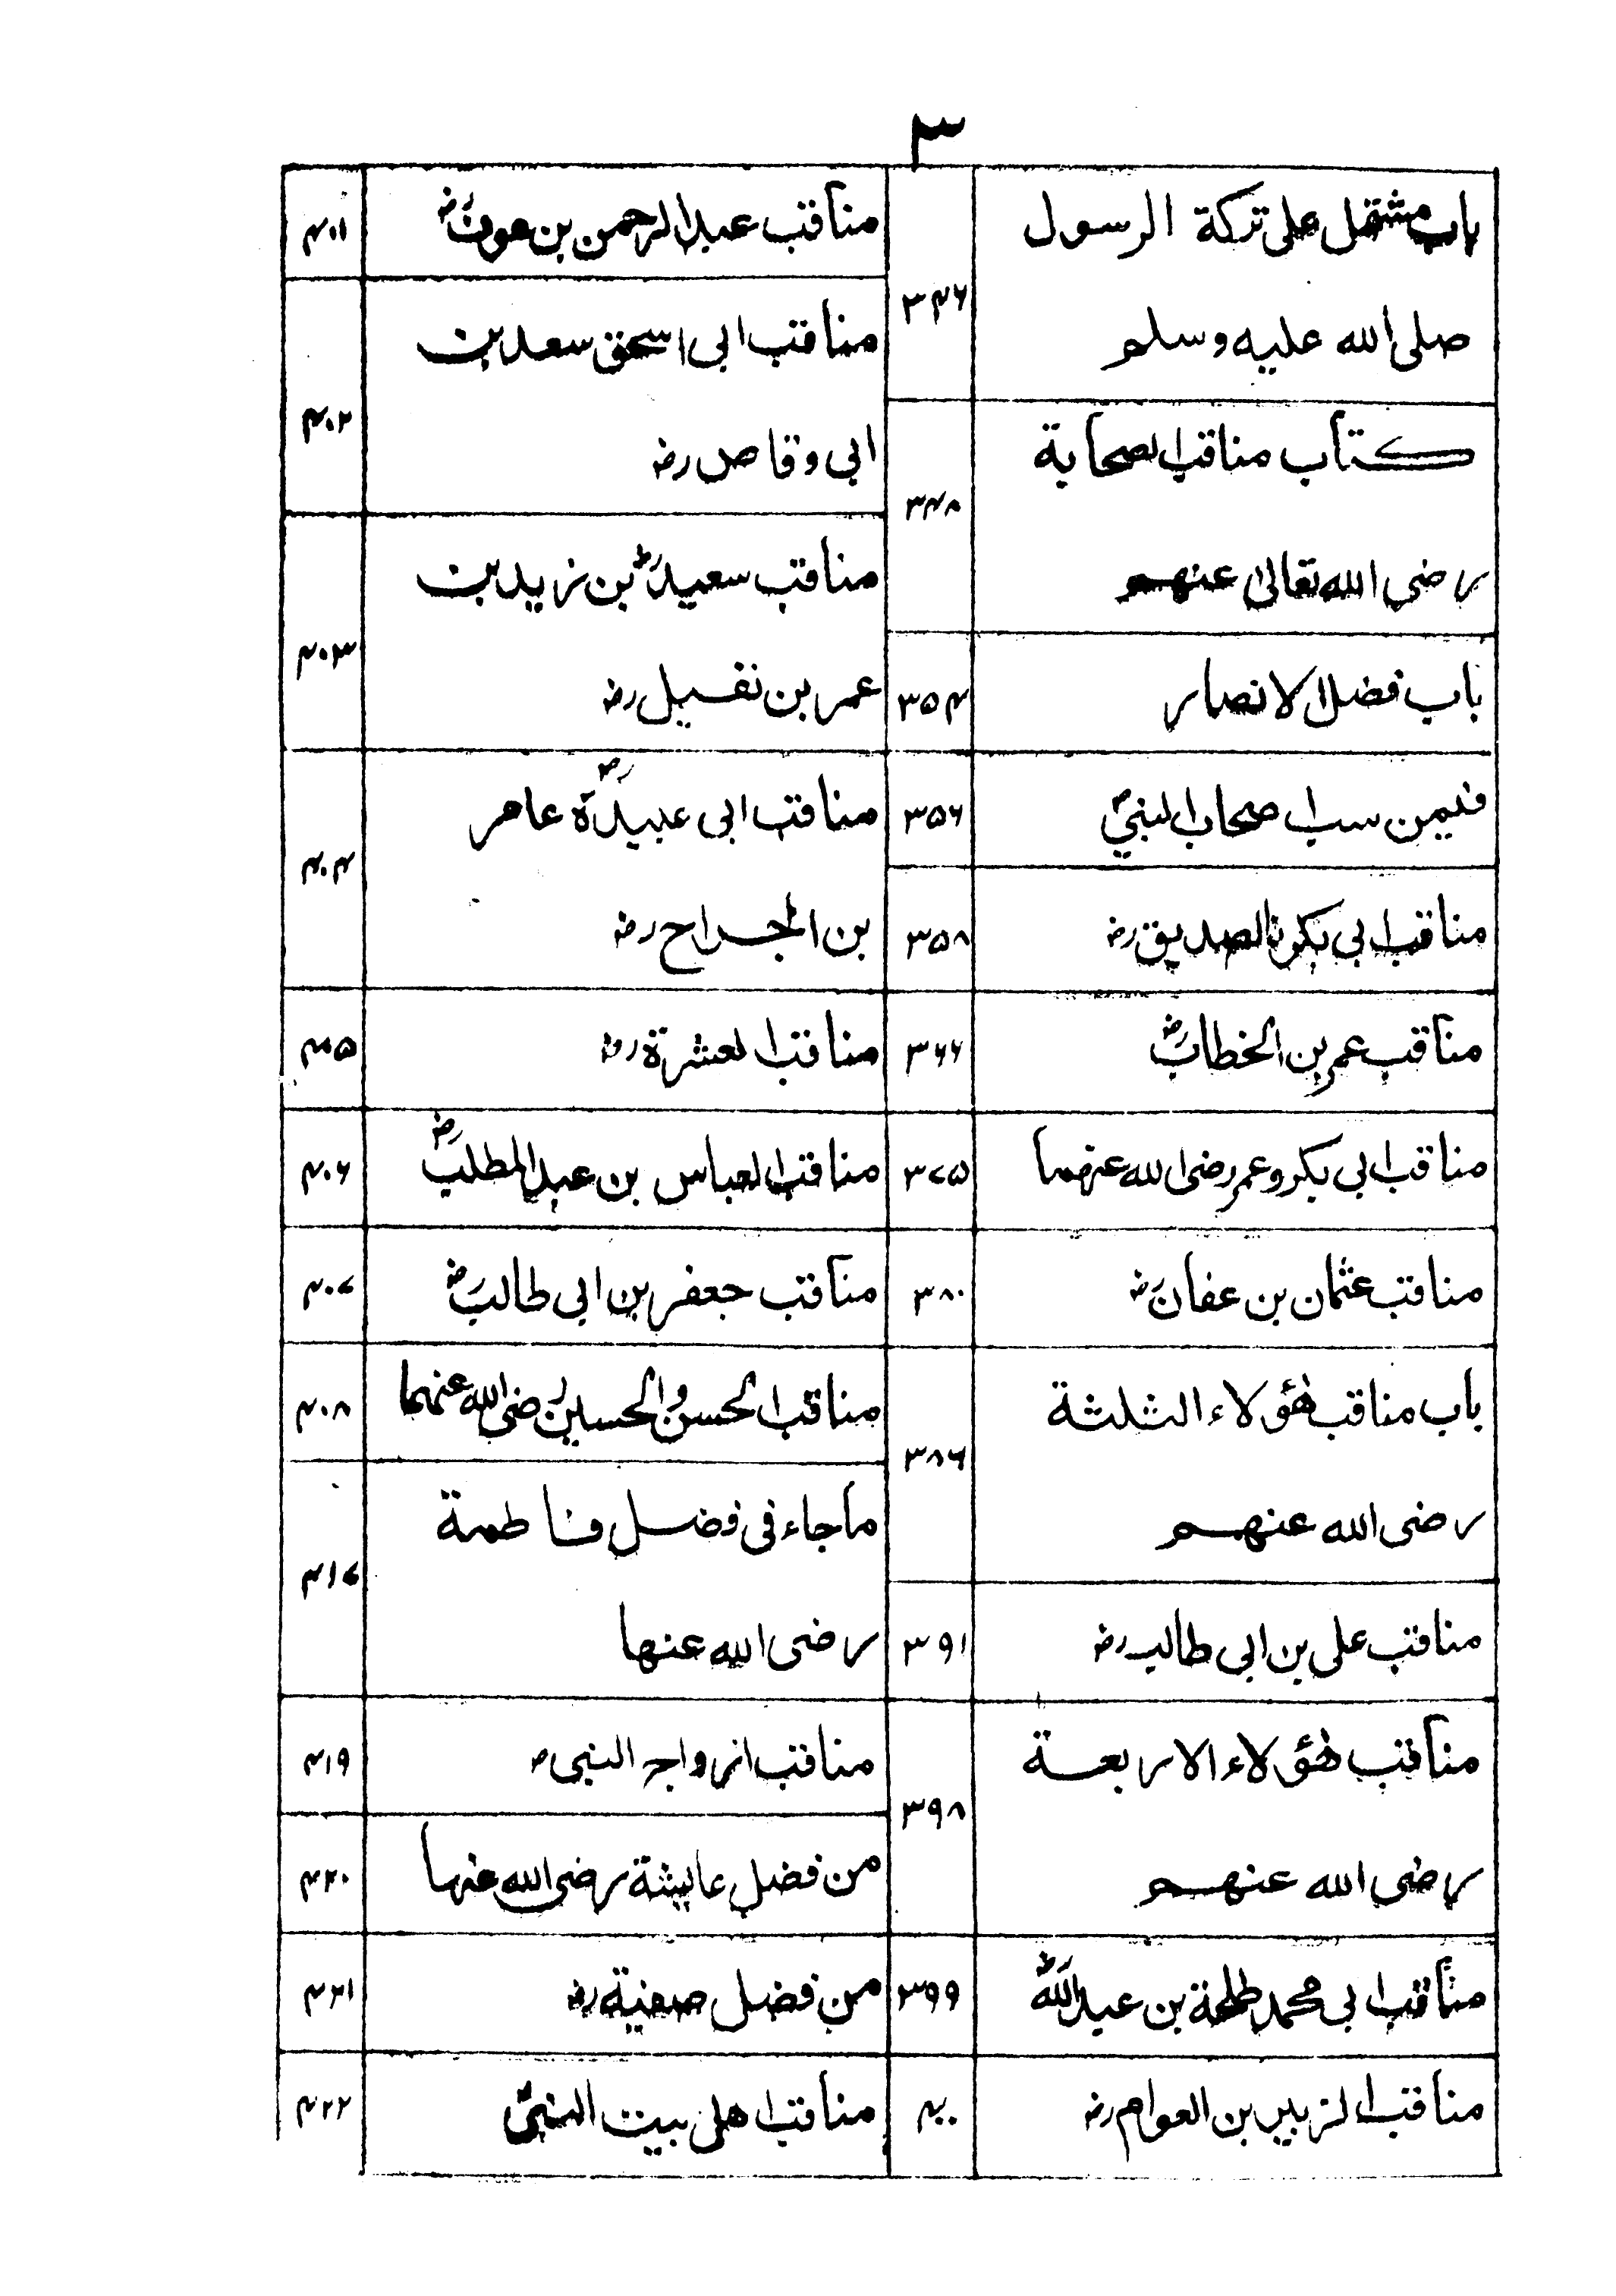 ۳
باب مشتمل علی ترکة الرسول
صلی الله علیه وسلم
۳۴۶
کتاب مناقب الصحابة
رضی الله تعالیٰ عنهم
۳۴۸
باب فضل الانصار
۳۵۴
فیمن سب اصحاب النبیؐ
۳۵۶
مناقب ابی بکر الصدیق رض
۳۵۸
مناقب عمر بن الخطاب رض
۳۶۶
مناقب ابی بکر وعمر رضی الله عنهما
۳۷۵
مناقب عثمان بن عفان رض
۳۸۰
باب مناقب هٰؤلاء الثلثة
رضی الله عنهم
۳۸۶
مناقب علی بن ابی طالب رض
۳۹۱
مناقب هٰؤلاء الاربعة
رضی الله عنهم
۳۹۸
مناقب ابی محمد طلحة بن عبید الله رض
۳۹۹
مناقب الزبیر بن العوام رض
۴۰۰
مناقب عبد الرحمن بن عوف رض
۴۰۱
مناقب ابی اسحق سعد بن
ابی وقاص رض
۴۰۲
مناقب سعید رض بن زید بن
عمر بن نفیل رض
۴۰۳
مناقب ابی عبیدة رض عامر
بن الجراح رض
۴۰۴
مناقب العشرة رض
۴۰۵
مناقب العباس بن عبد المطلب رض
۴۰۶
مناقب جعفر بن ابی طالب رض
۴۰۷
مناقب الحسن والحسین رضی الله عنهما
۴۰۸
ما جاء فی فضل فاطمة
رضی الله عنها
۴۱۷
مناقب ازواج النبی ص
۴۱۹
من فضل عایشة رضی الله عنها
۴۲۰
من فضل صفیة رض
۴۲۱
مناقب اهل بیت النبیؐ
۴۲۲